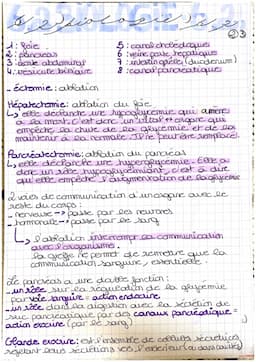 1: Foie
2: pancréas
3: aorte abdominale
4: vésicule biliaire
5: canal cholédoque
6: veine porte hépatique
7: intestin grêle (duodénum)
8: canal pancréatique
- éctomie: ablation
Hépatectomie: ablation du foie
↳ elle déclenche une hypoglycémie qui amène
à la mort, c'est donc un organe qui
empêche la chute de la glycémie et de la
maintenir à la normale. Il ne peut être remplacé.
Pancréatectomie: ablation du pancréas
↳ elle déclenche une hyperglycémie. Elle a
donc un rôle hypoglycémiant, c'est à dire
qu'elle empêche l'augmentation de la glycémie
2 voies de communication d'un organe avec le
reste du corps:
- nerveuse → passe par les neurones
- hormonale → passe par le sang
↳ l'ablation interrompt sa communication
avec l'organisme.
la greffe ne permet de remettre que la
communication sanguine, essentielle.
Le pancréas a une double fonction:
- un rôle sur la régulation de la glycémie
par voie sanguine = action endocrine
- un rôle dans la digestion avec la sécrétion de
suc pancréatique par des canaux pancréatique =
action exocrine (par le sang)
Glande exocrine: est l'ensemble de cellules sécrétrices
rejetant leurs sécrétions vers l'extérieur (ou dans cavités)